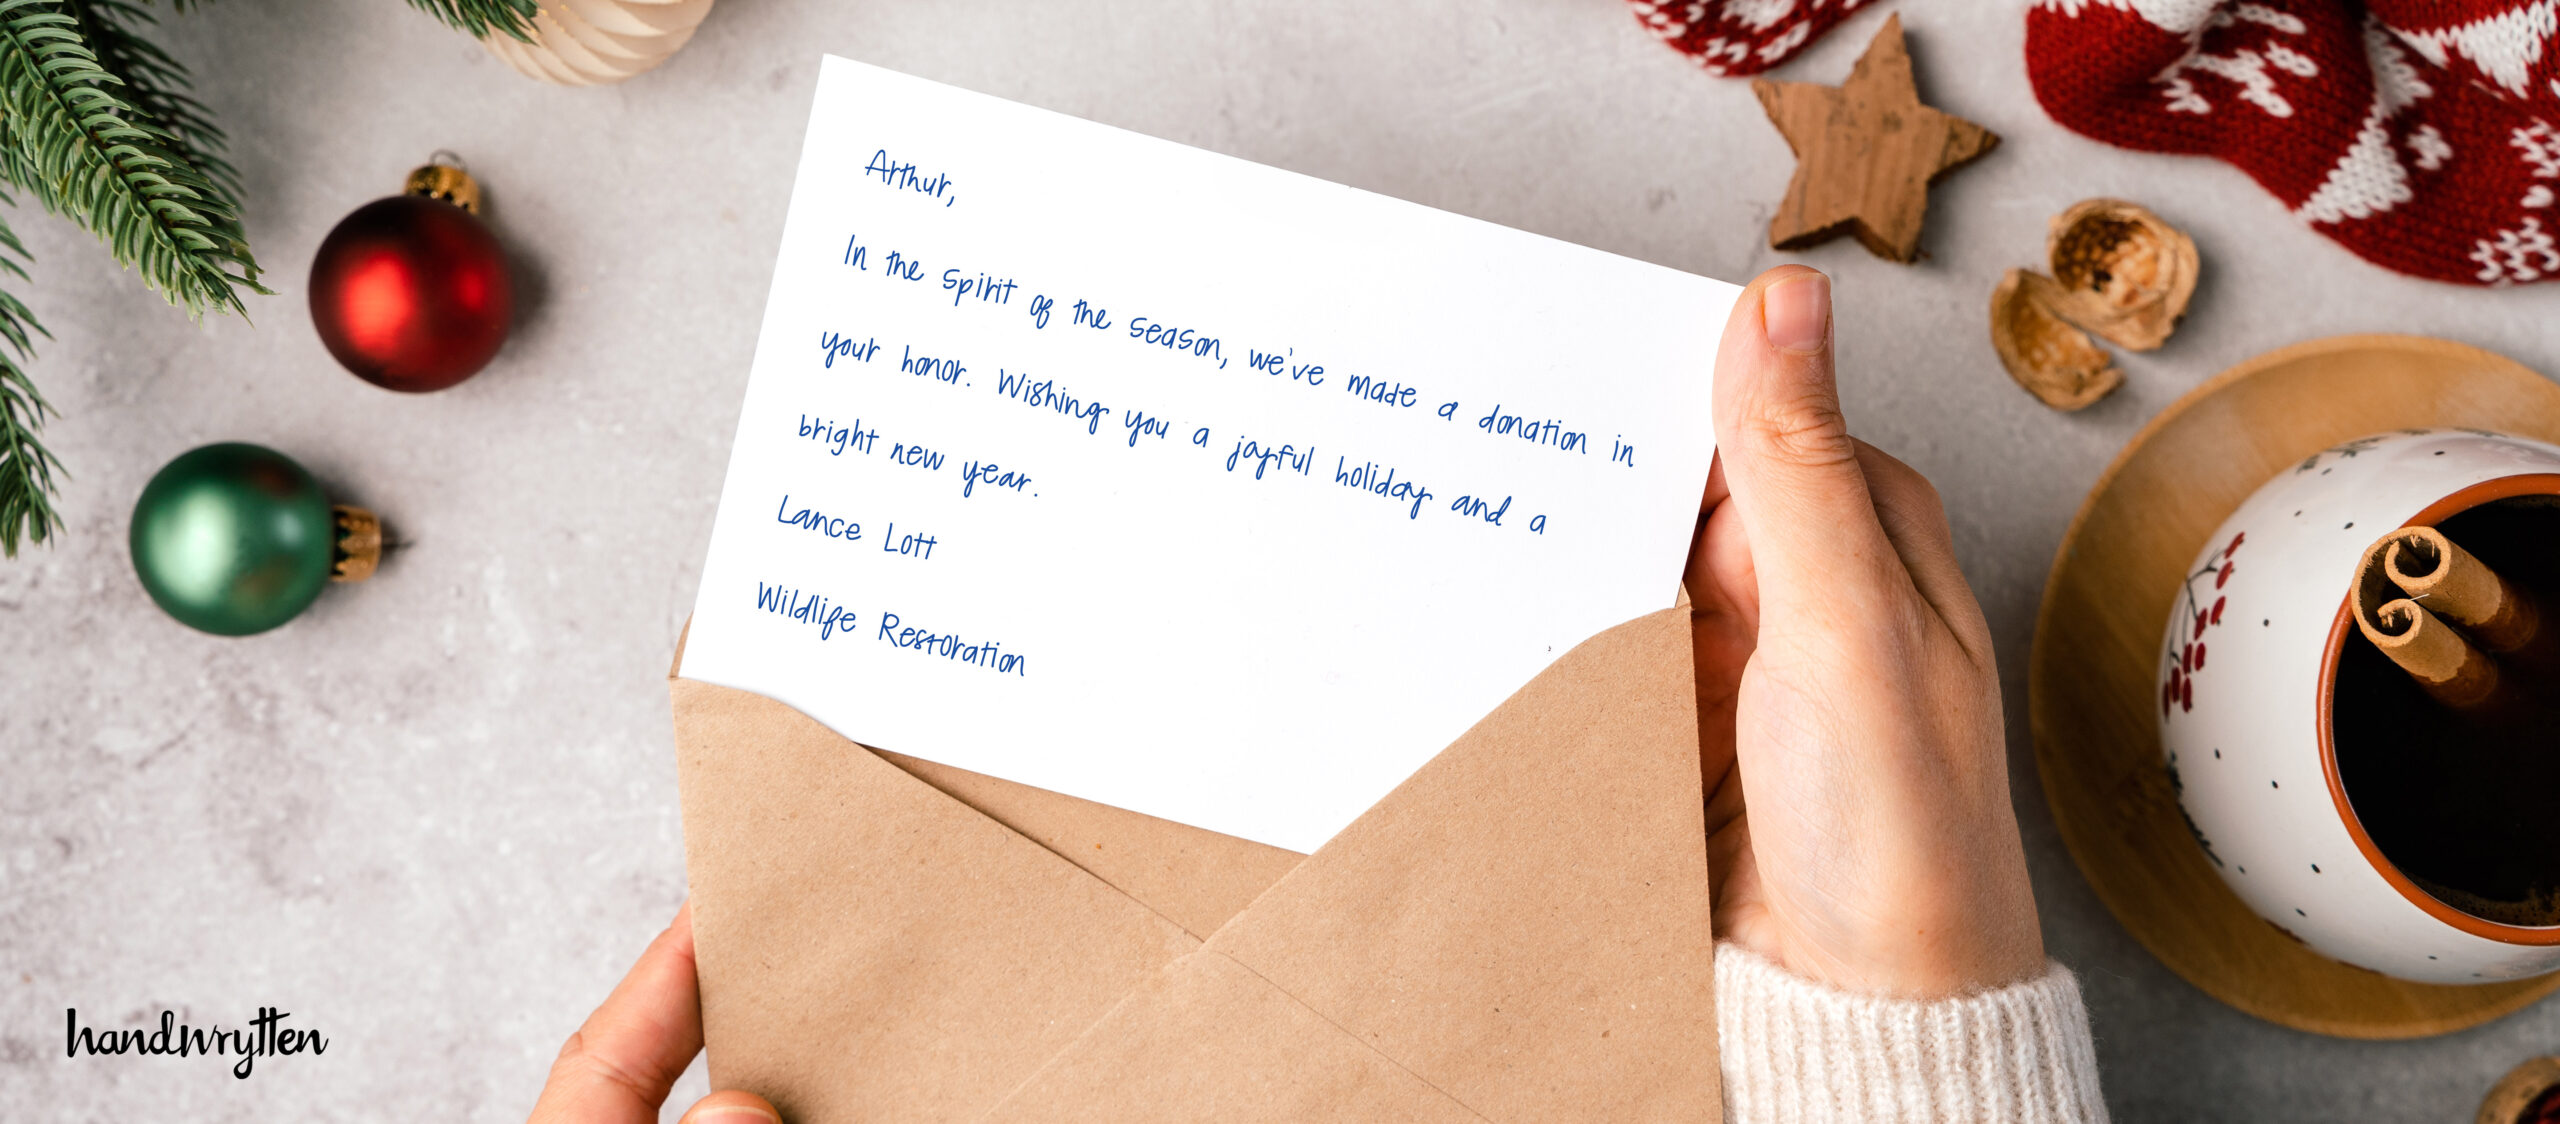 Arthur,
In the spirit of the season, we've made a donation in
your honor. Wishing you a joyful holiday and a
bright new year.
Lance Lott
Wildlife Restoration
handwrytten